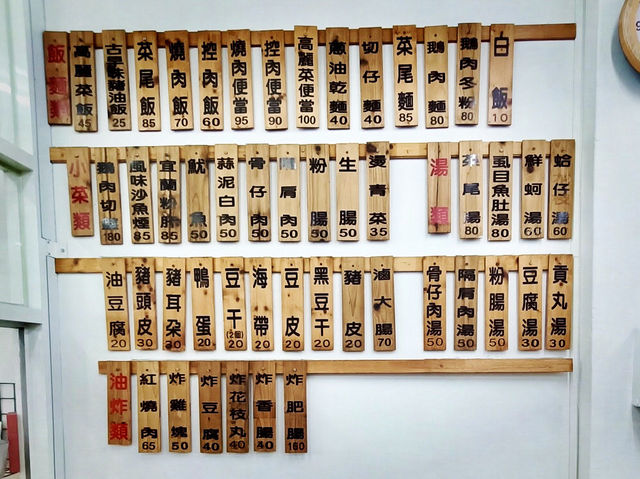 飯麵類
高麗菜飯 45
古早味豬油飯 25
菜尾飯 85
燒肉飯 70
控肉飯 60
燒肉便當 95
控肉便當 90
高麗菜便當 100
蔥油乾麵 40
切仔麵 40
菜尾麵 85
鵝肉麵 80
鵝肉冬粉 80
白飯 10
小菜類
鵝肉切盤 180
風味沙魚煙 85
宜蘭粉腸 85
魷魚 50
蒜泥白肉 50
骨仔肉 50
肩肉 50
粉腸 50
生腸 50
燙青菜 35
湯類
尾湯 80
虱目魚肚湯 80
鮮蚵湯 60
蛤仔湯 60
油豆腐 20
豬頭皮 30
豬耳朵 30
鴨蛋 20
豆干(2個) 20
海帶 20
豆皮 20
黑豆干 20
豬皮 20
滷大腸 70
骨仔肉湯 50
隔肩肉湯 50
粉腸湯 50
豆腐湯 30
貢丸湯 30
油炸類
紅燒肉 65
炸雞塊 50
炸豆腐 40
炸花枝丸 40
炸香腸 40
炸肥腸 160